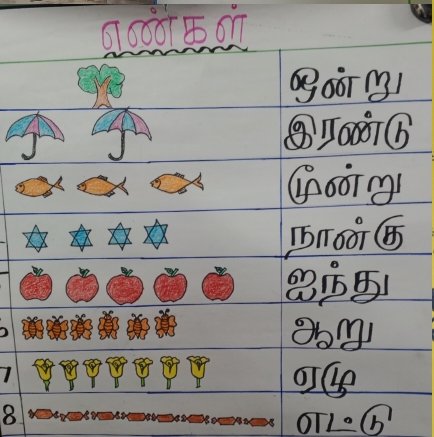 எண்கள்
ஒன்று
இரண்டு
மூன்று
நான்கு
ஐந்து
6 ஆறு
7 ஏழு
8 எட்டு